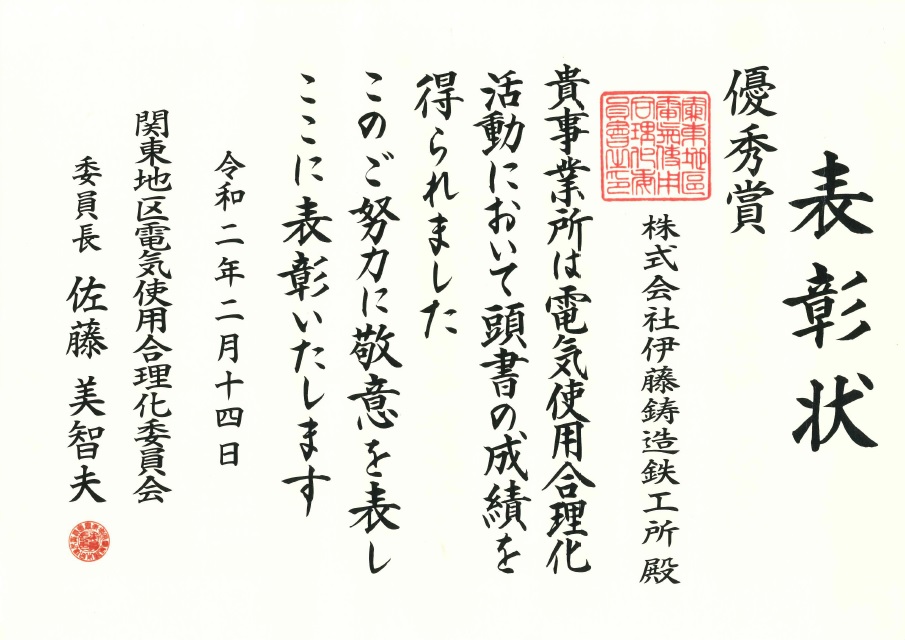 表彰状
優秀賞
株式会社伊藤鋳造鉄工所 殿
貴事業所は電気使用合理化
活動において頭書の成績を
得られました
このご努力に敬意を表し
ここに表彰いたします
令和二年二月十四日
関東地区電気使用合理化委員会
委員長 佐藤 美智夫